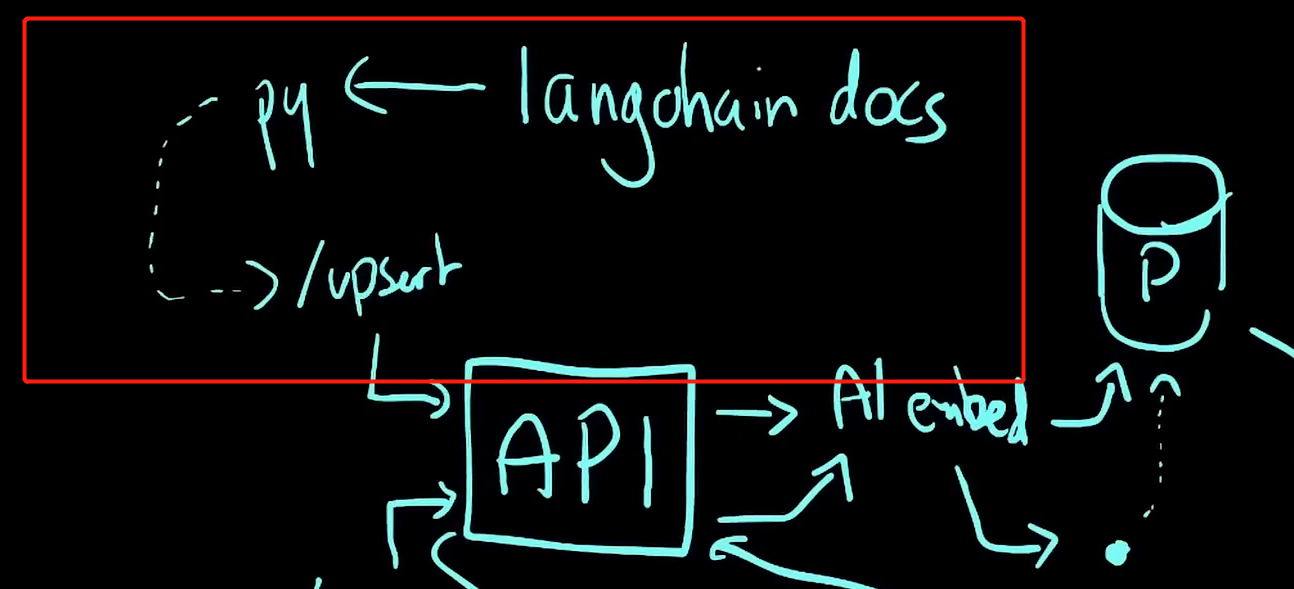 py langchain docs
/upsert
P
AI embed
API